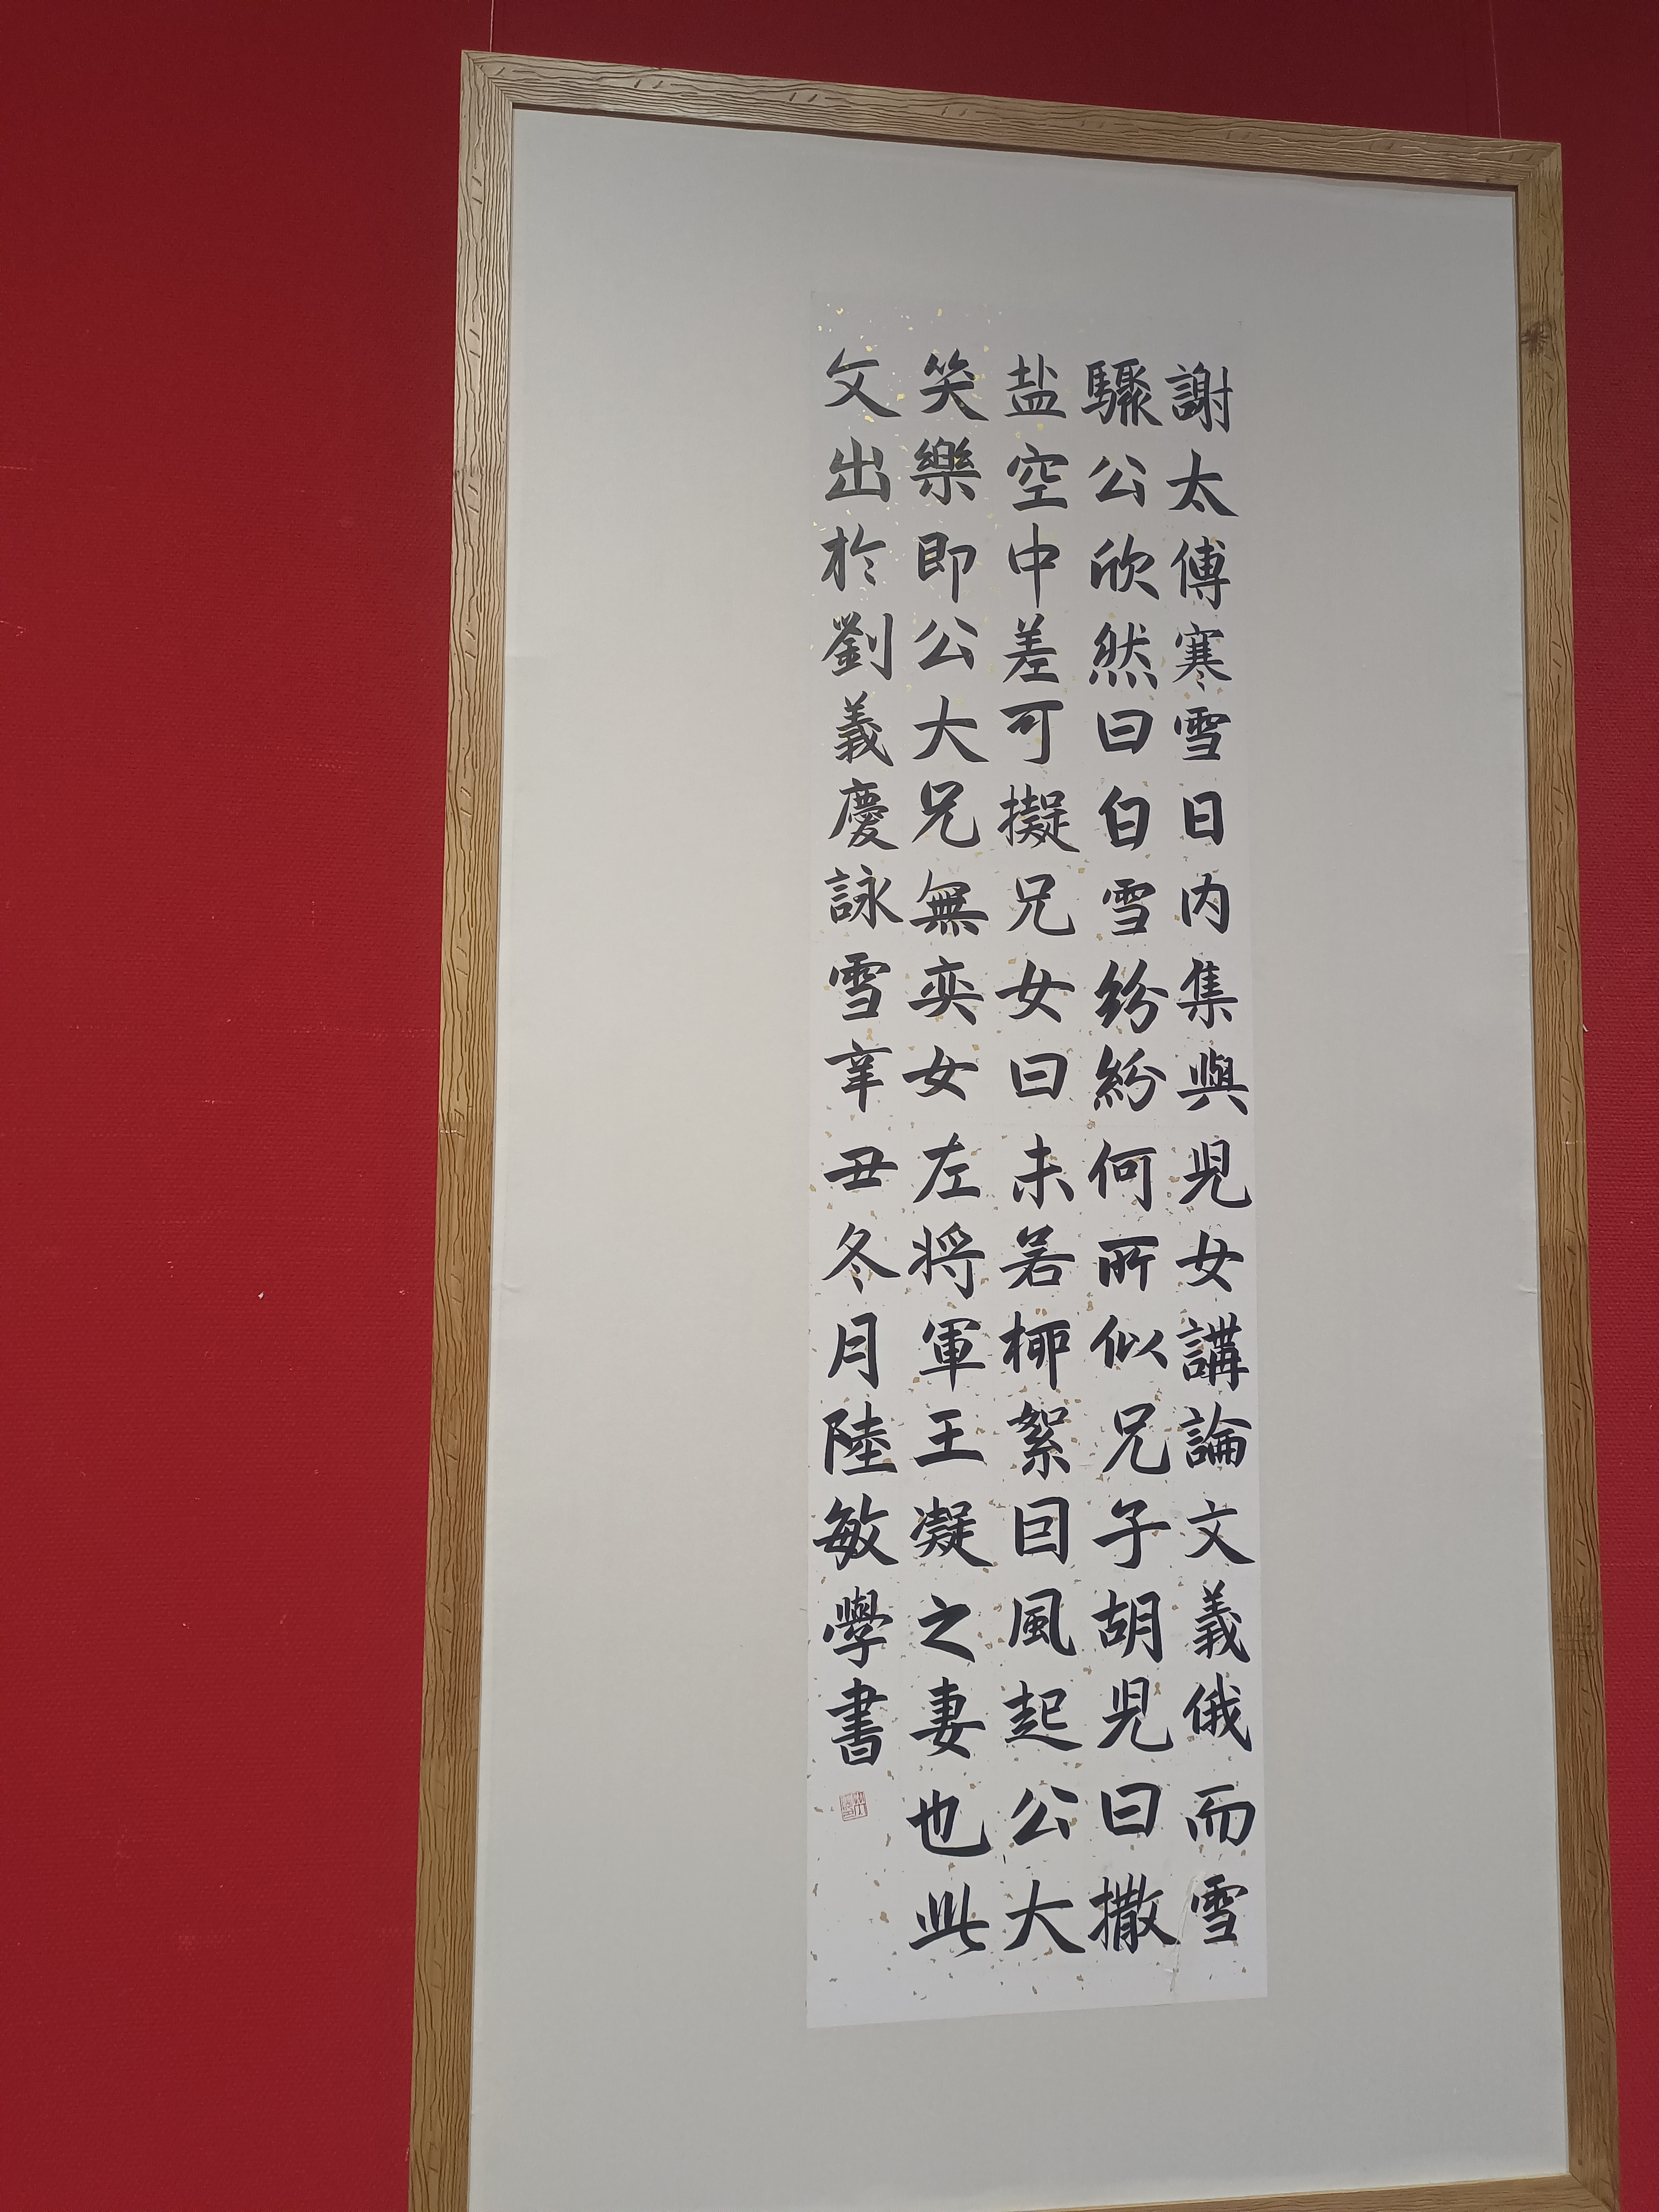 謝太傅寒雪日内集與児女講論文義俄而雪
驟公欣然曰白雪紛紛何所似兄子胡児曰撒
盐空中差可擬兄女曰未若柳絮因風起公大
笑樂即公大兄無奕女左将軍王凝之妻也此
文出於劉義慶詠雪辛丑冬月陸敏學書